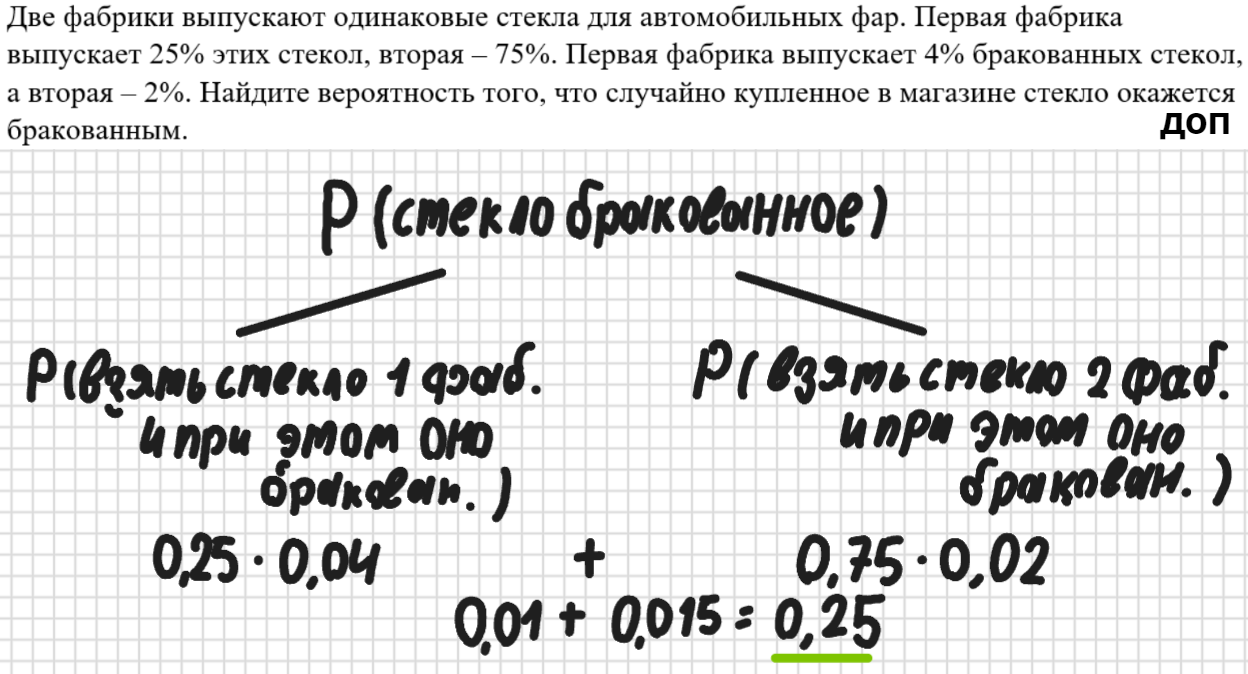 Две фабрики выпускают одинаковые стекла для автомобильных фар. Первая фабрика
выпускает 25% этих стекол, вторая – 75%. Первая фабрика выпускает 4% бракованных стекол,
а вторая – 2%. Найдите вероятность того, что случайно купленное в магазине стекло окажется
бракованным.
ДОП
P (стекло бракованное)
P (взять стекло 1 фаб. P (взять стекло 2 фаб.
и при этом оно и при этом оно
бракован.) бракован.)
0,25 · 0,04 + 0,75 · 0,02
0,01 + 0,015 = 0,25